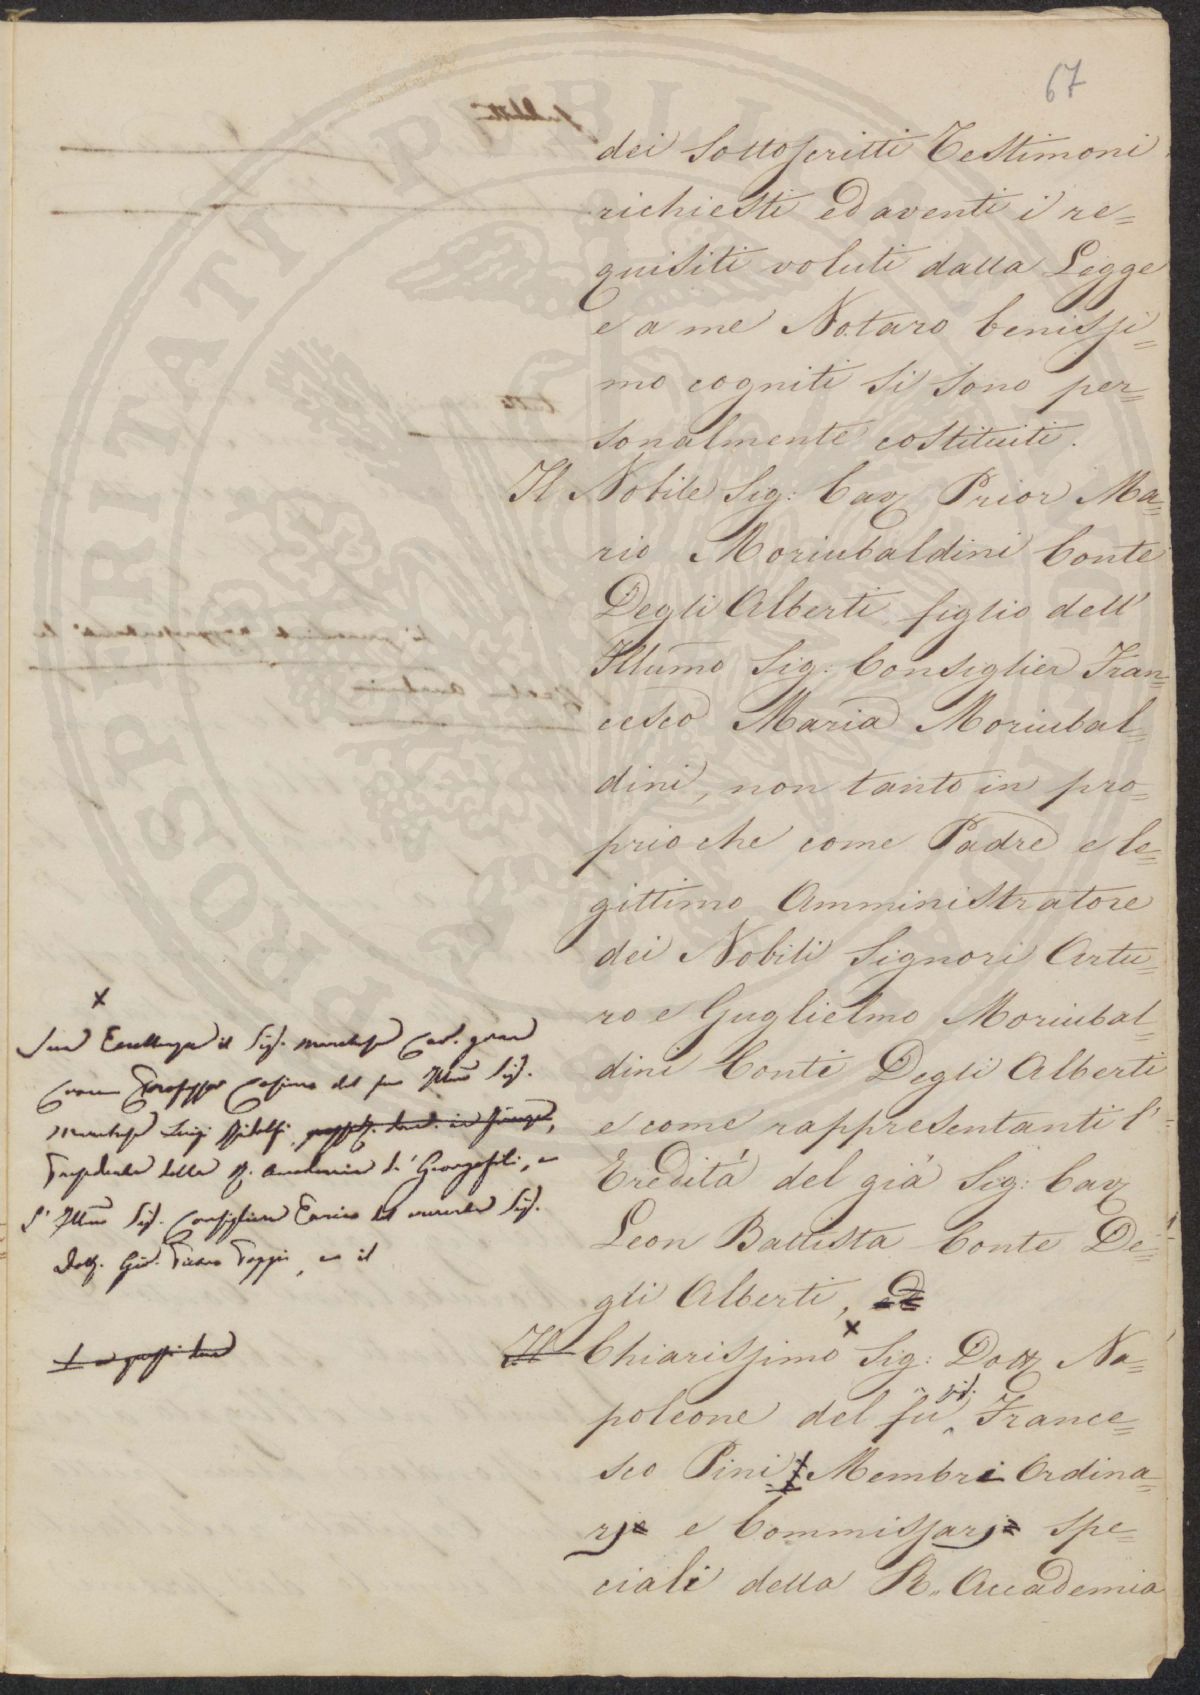 67
dei Sottoscritti Testimoni
richiesti ed aventi i re=
quisiti voluti dalla Legge
e a me Notaro benissi=
mo cogniti si sono per=
sonalmente costituiti.
Il Nobile Sig: Cav Prior Ma=
rio Moriubaldini Conte
Degli Alberti, figlio dell'
Illumo Sig: Consiglier Fran=
cesco Maria Moriubal=
dini, non tanto in pro=
prio che come Padre e le=
gittimo Amministratore
dei Nobili Signori Artu=
ro e Guglielmo Moriubal=
dini Conti Degli Alberti
e come rappresentanti l'=
Eredità del già Sig: Cav
Leon Battista Conte De=
gli Alberti, ed
Il Chiarissimo x Sig: Dott Na=
poleone del fu France=
sco Pini Membri Ordina=
rj e Commissarj spe=
ciali della R. Accademia
x
Sua Eccellenza il Sig. Marchese Cav. gran
Croce Professore Cosimo del fu Illmo Sig.
Marchese Luigi Ridolfi, possid. dom. in Firenze,
Presidente della R. Accademia de' Georgofili, e
l' Illmo Sig. Consigliere Enrico del vivente Sig.
Dott. Gio. Poggi, e il
PROSPERITATI PUBLICAE